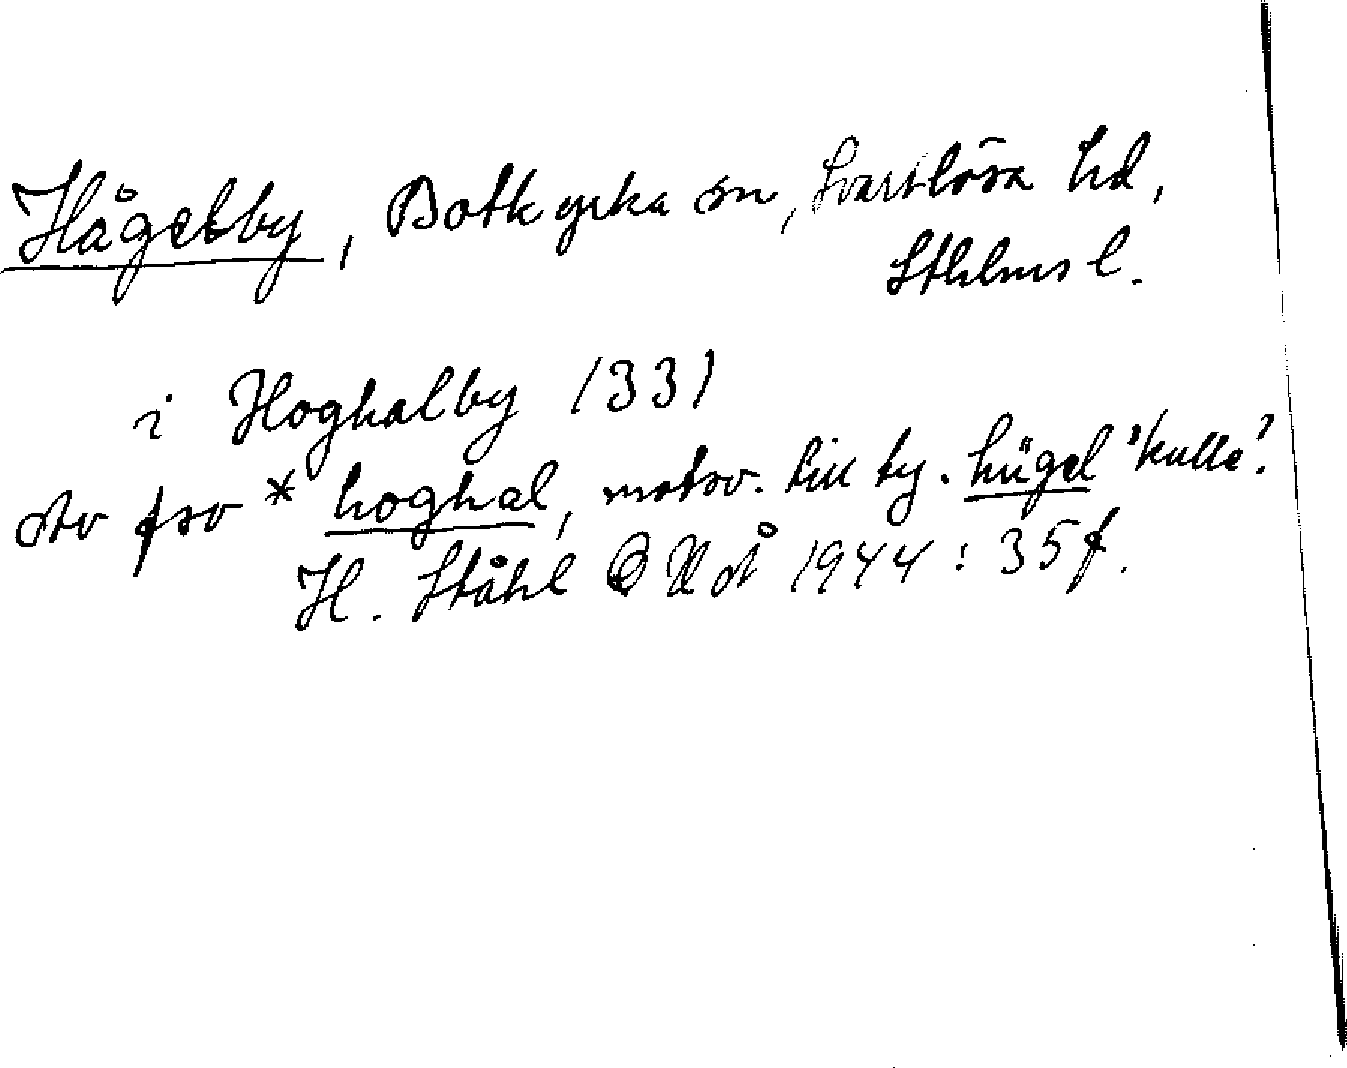 Hågelby, Botkyrka sn, Svartlösa hd,
Sthlms l.
i Hoghalby 1331
Av fsv * hoghal, motsv. till ty. hügel 'kulle'.
H. Ståhl i UoÅ 1944 : 35 f.